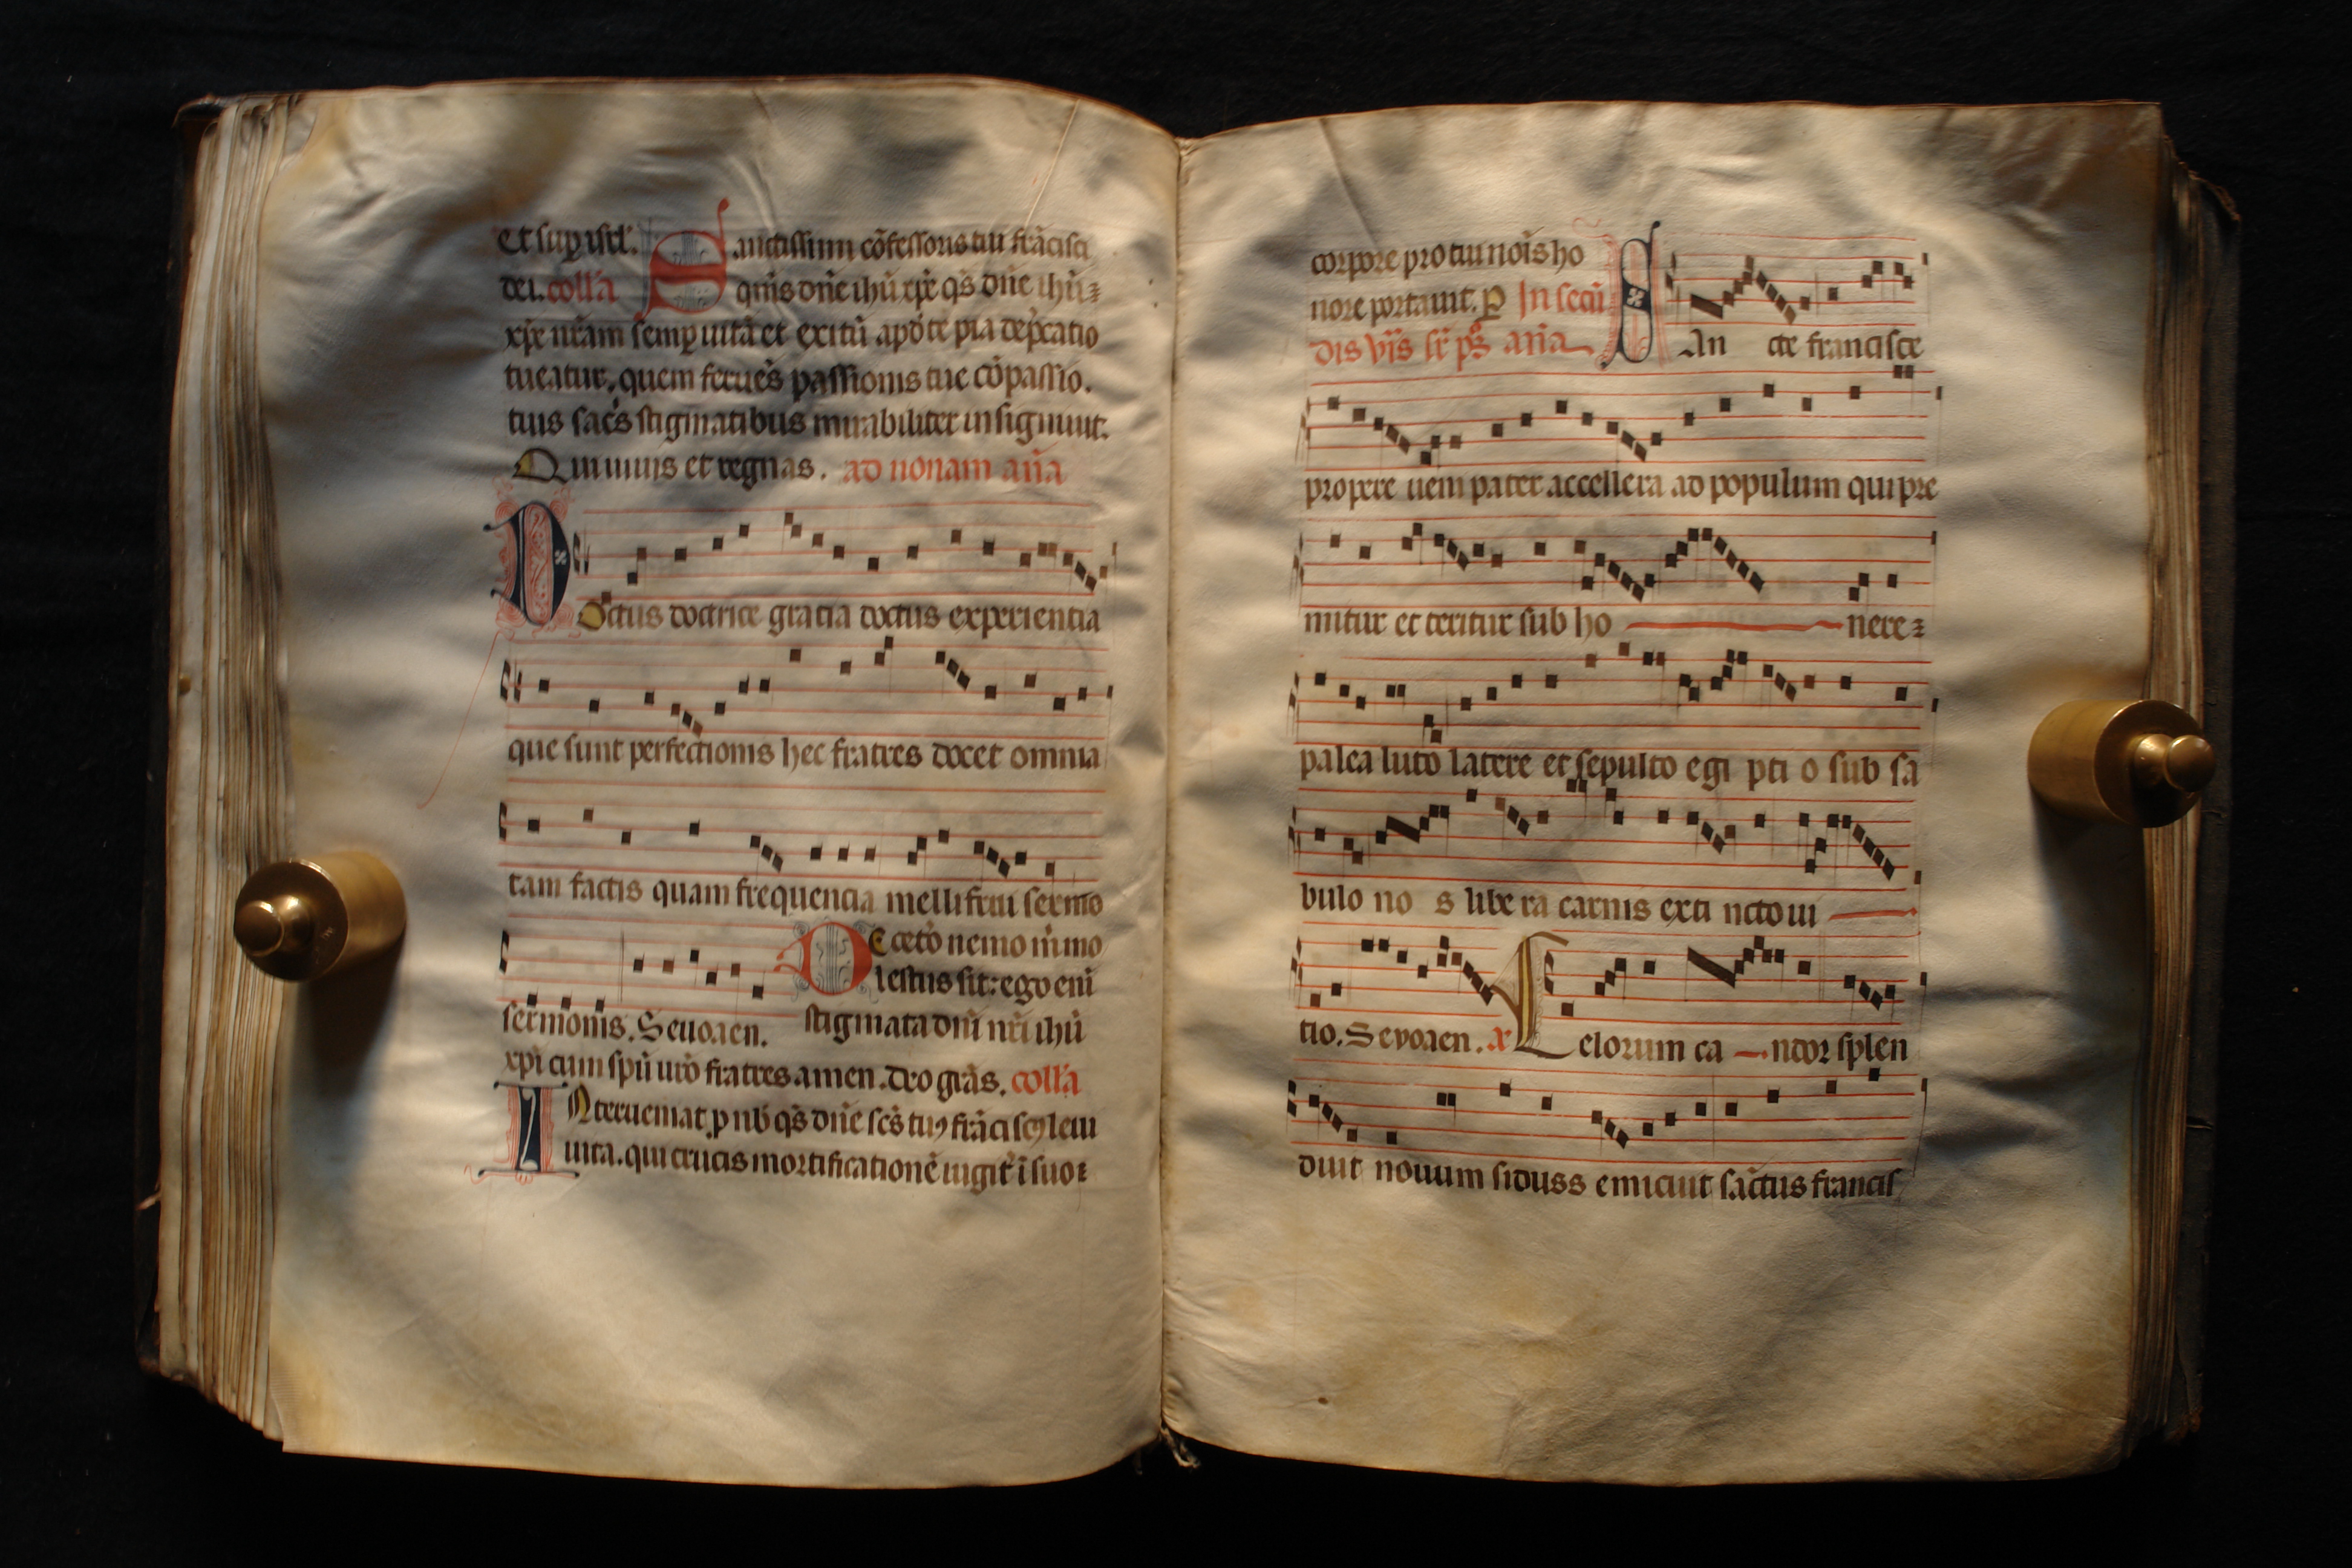 et sup isrl'. Sanctissimi cōfessoris tui frācisci
dei. coll'a quis dn̄e ihū xp̄e qs̄ dn̄e ihū
xp̄e nr̄am semp uitā et exitū apōte pia dep̄catio
tueatur, quem feruēs passionis tue cōpassio.
tuis sac̄s stigmatibus mirabiliter insigniuit.
Qui uiuis et regnas. ad nonam an̄a
Doctus doctrice gracia doctus experientia
que sunt perfectionis hec fratres docet omnia
tam factis quam frequencia mellifrui sermo
sermonis. Seuouaen. De cetō nemo m̄ mo
lestus sit: ego eni
stigmata dn̄i nr̄i ihū
xp̄i cum spū urō fratres. amen. deo grās. coll'a
Interueniat p nb̄ qs̄ dn̄e scs̄ tuꝰ frāciscꝰ leui
uita. qui crucis mortificationē iugit̄ ī suo
corpore pro tui nōis ho
nore portauit. p In secū
dis vīis sr̄ ps̄ an̄a SAn cte francisce
propere ueni pater accellera ad populum qui pre
mitur et teritur sub ho nere
palea luto latere et sepulto egi pti o sub sa
bulo no s libe ra carnis exti ncto ui
tio. Sevoaen. x Celorum ca ndor splen
duit nouum siduss emicuit sāctus francis